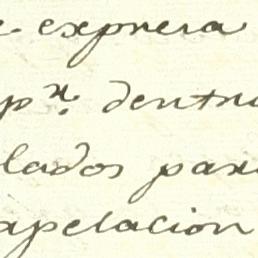 e expresa
pr. dentro
lados para
apelacion